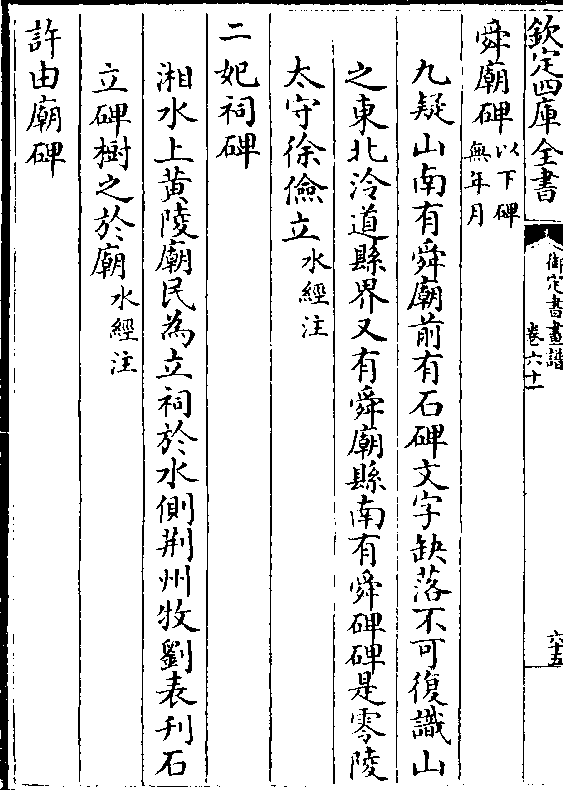 欽定四庫全書
御定書畫譜
卷六十一
六十五
舜廟碑以下碑無年月
九疑山南有舜廟前有石碑文字缺落不可復識山
之東北泠道縣界又有舜廟縣南有舜碑碑是零陵
太守徐儉立水經注
二妃祠碑
湘水上黄陵廟民為立祠於水側荆州牧劉表刋石
立碑樹之於廟水經注
許由廟碑